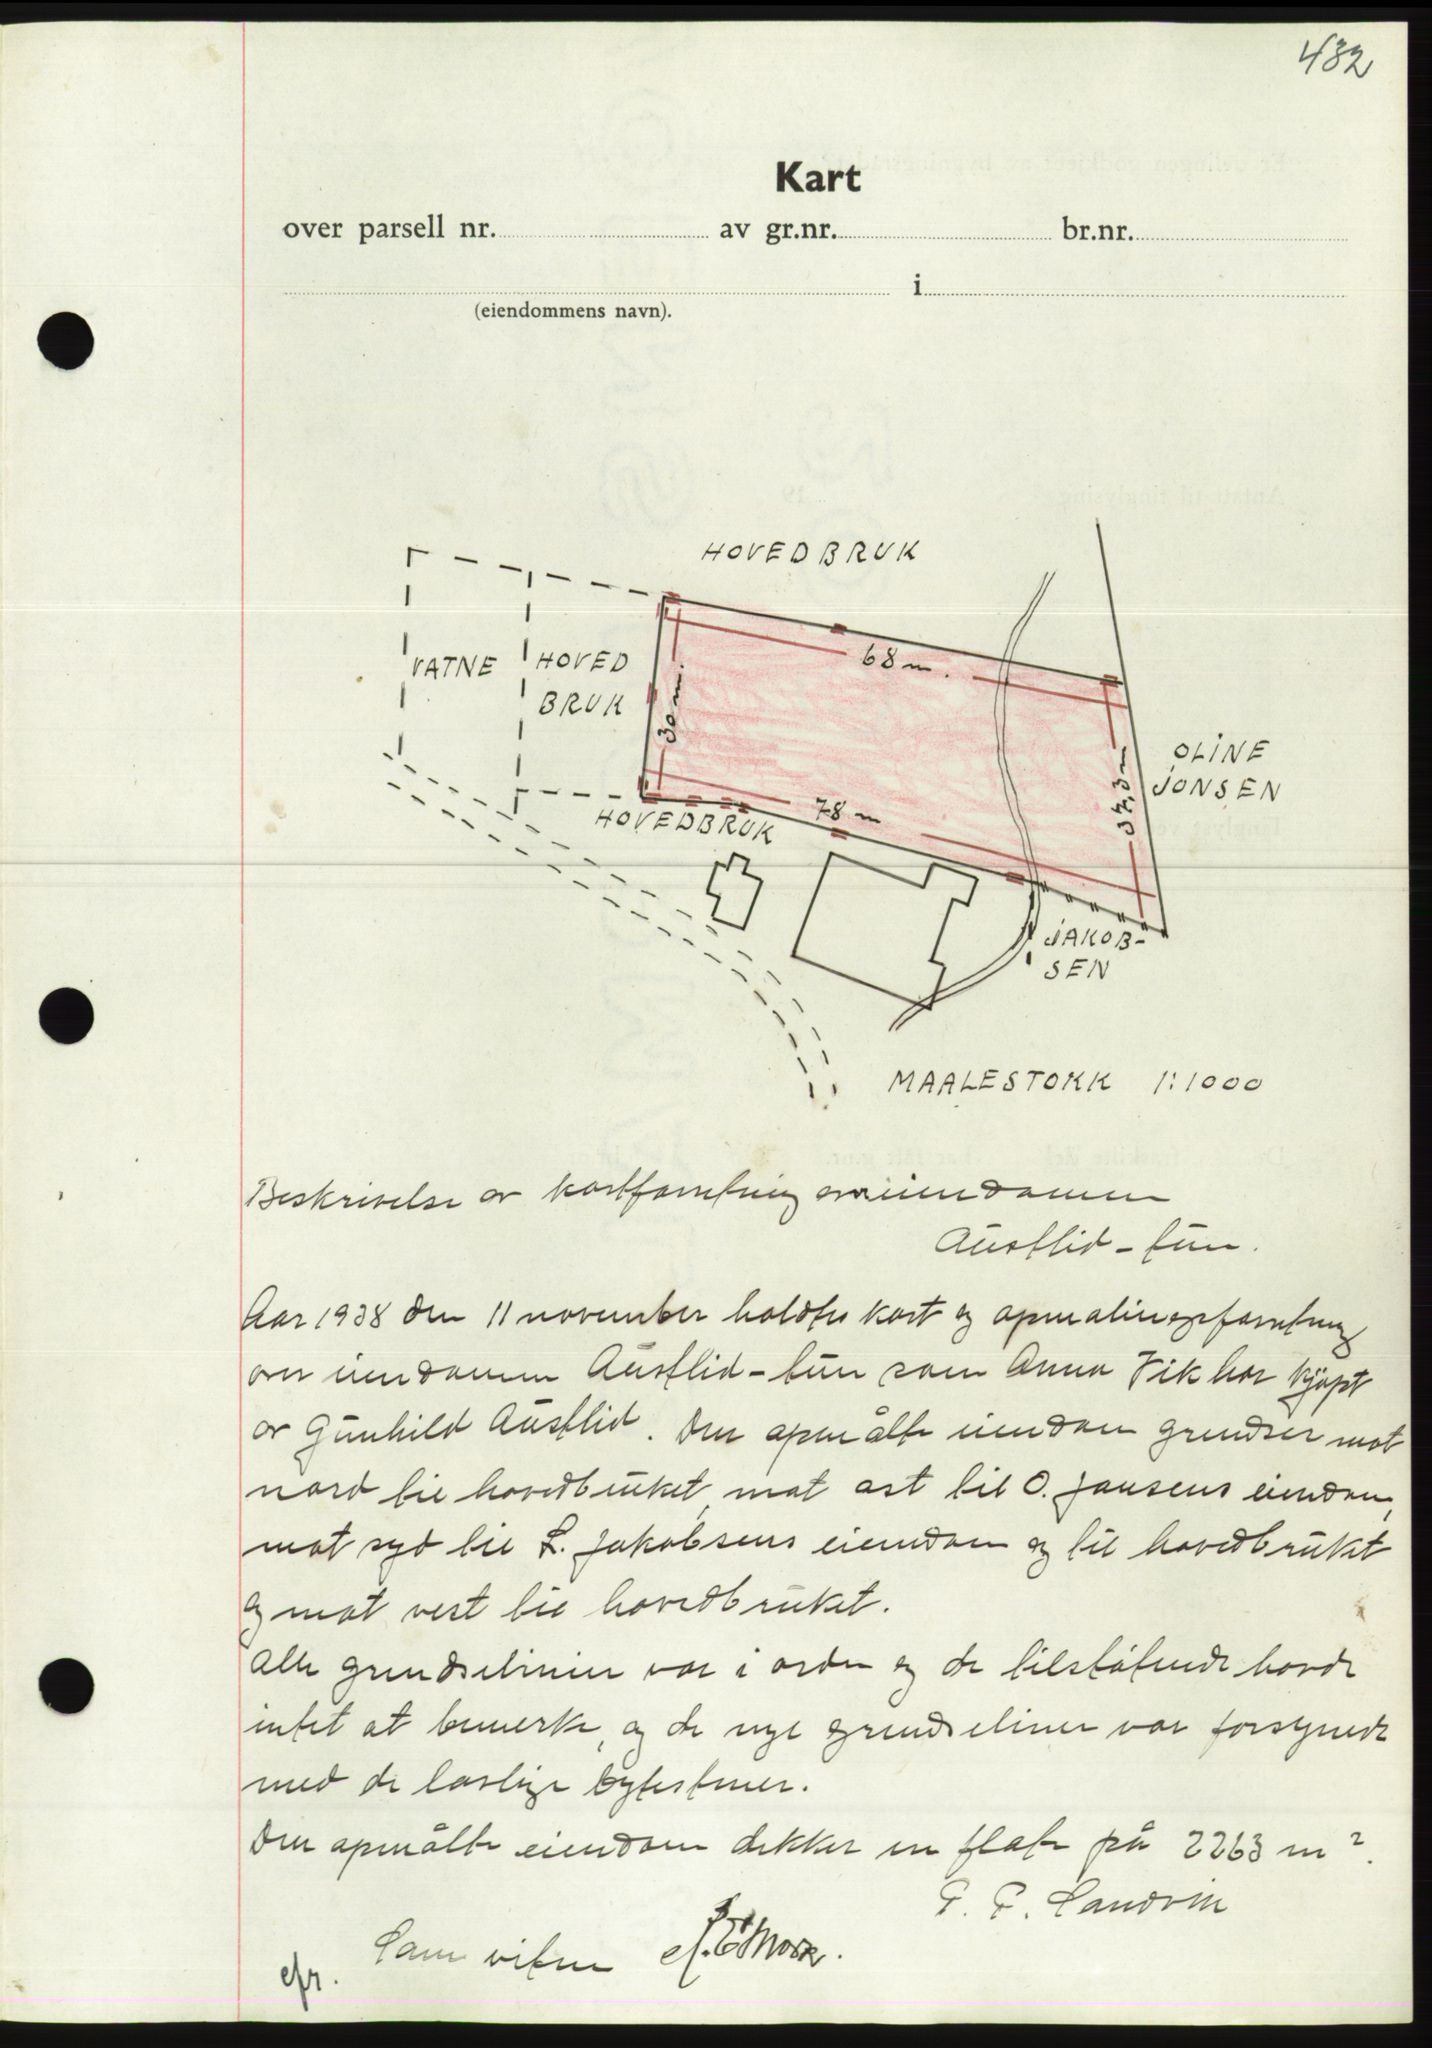 432
Kart
over parsell nr. av gr.nr. br.nr.
i
(eiendommens navn).
HOVEDBRUK
VATNE
HOVED
BRUK
68 m.
30 m.
37,3 m
OLINE
JONSEN
78 m
HOVEDBRUK
JAKOB-
SEN
MAALESTOKK 1:1000
Beskrivelse av kartforretning over eiendommen
Austlid-tun.
Aar 1938 den 11 november holdtes kart og opmalingsforretning
over eiendommen Austlid-tun som Anna Vik har kjøpt
av Gunhild Austlid. Den opmålte eiendom grendser mot
nord til hovedbruket, mot ost til O. Jonsens eiendom,
mot syd til L. Jakobsens eiendom og til hovedbruket
og mot vest til hovedbruket.
Alle grendselinier var i orden og de tilstøtende havde
intet at bemerke, og de nye grendseliner var forsynede
med de lovlige bytestener.
Den opmålte eiendom dekker en flate på 2263 m².
P. P. Sandvin
Som vitne
efr.